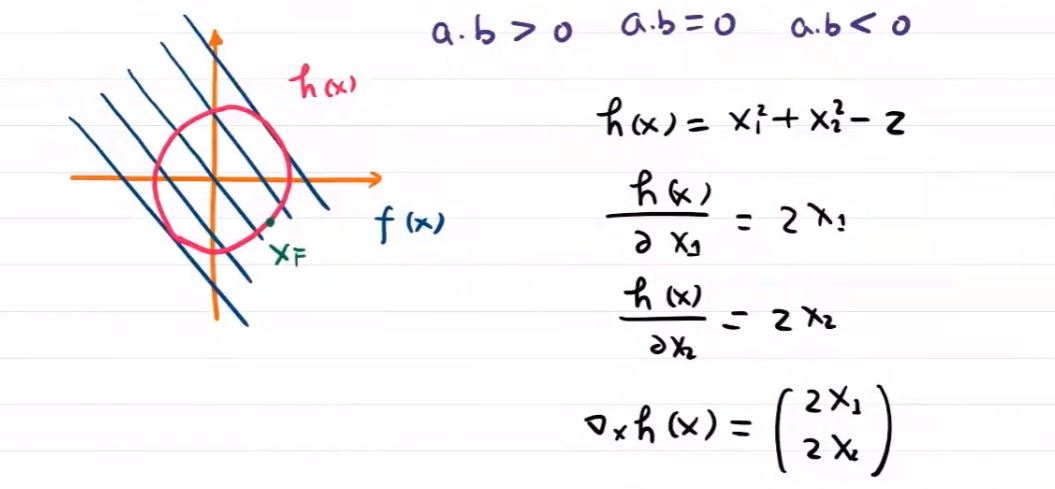 a.b > 0 a.b = 0 a.b < 0
h(x)
h(x) = x₁² + x₂² - 2
h(x)
∂ x₁ = 2x₁
f(x)
x_F
h(x)
∂x₂ = 2x₂
∇ₓh(x) = (2x₁
2x₂)